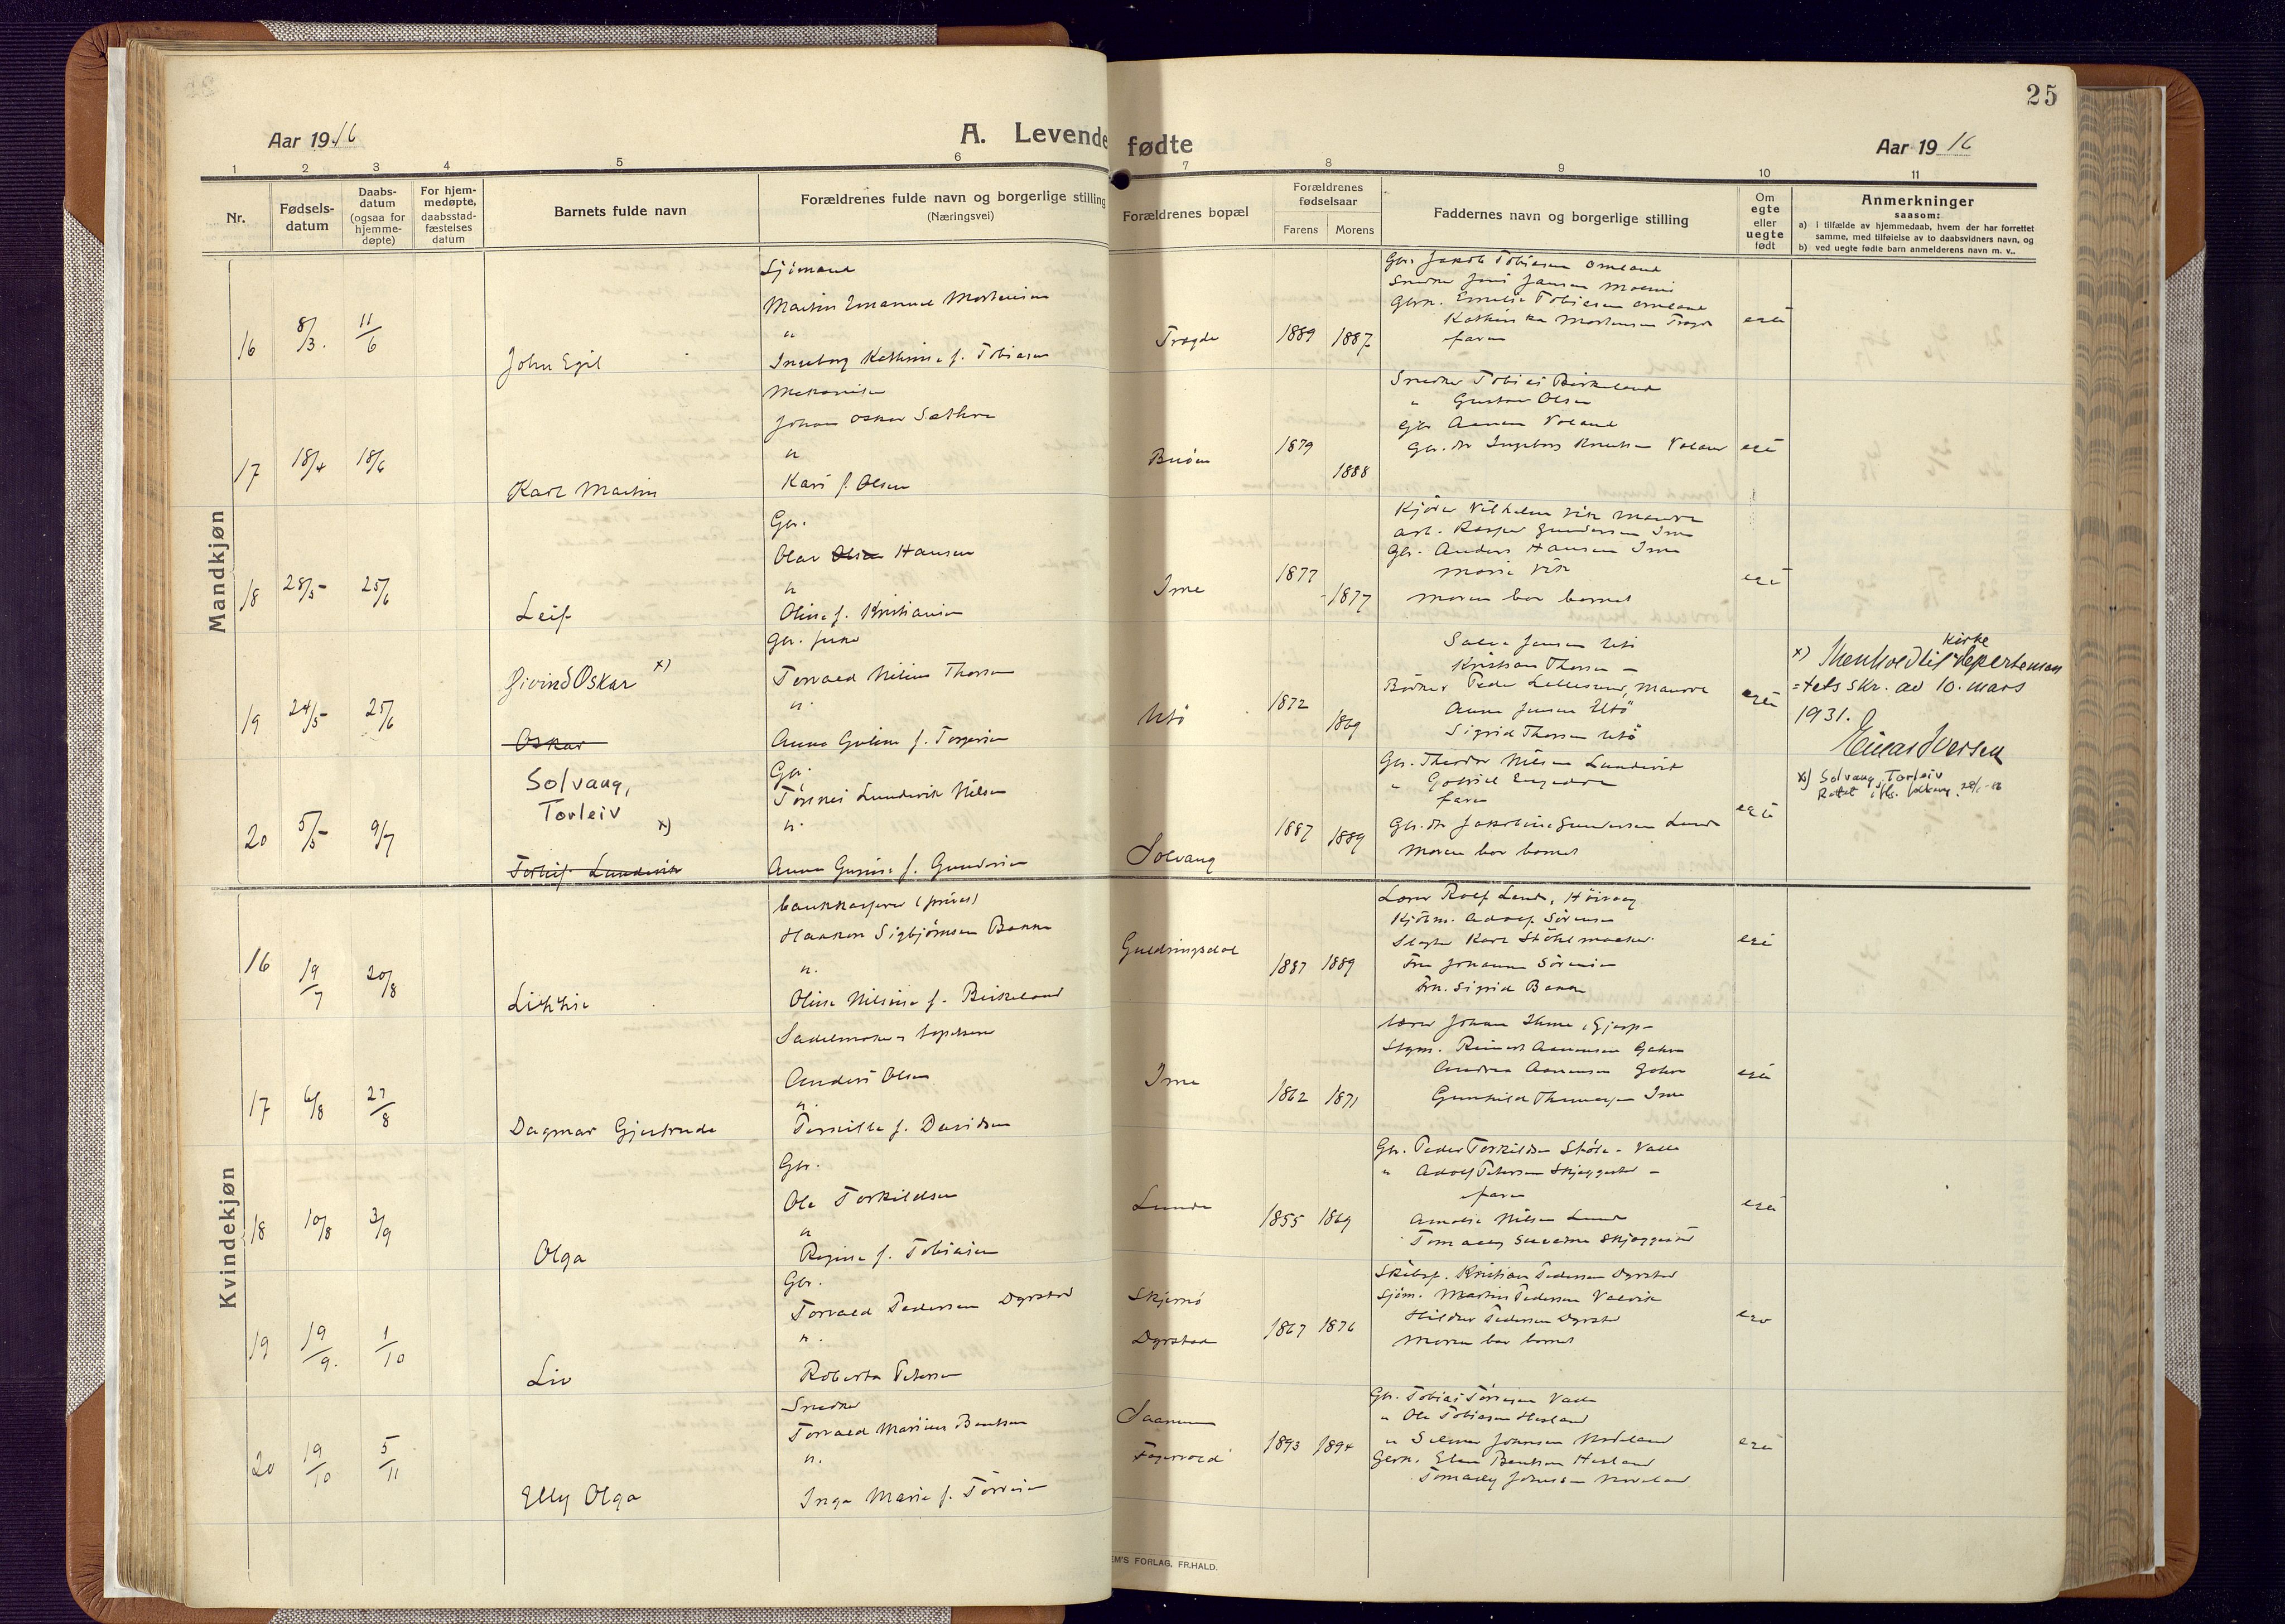 25
Aar 1916
A. Levende fødte
Aar 1916
1 2 3 4 5 6 7 8 9 10 11
Nr.
Fødsels-
datum
Daabs-
datum
(ogsaa for
hjemme-
døpte)
For hjem-
medøpte,
daabsstad-
fæstelses
datum
Barnets fulde navn
Forældrenes fulde navn og borgerlige stilling
(Næringsvei)
Forældrenes bopæl
Forældrenes
fødselsaar
Farens Morens
Faddernes navn og borgerlige stilling
Om
egte
eller
uegte
født
Anmerkninger
saasom:
a) i tilfælde av hjemmedaab, hvem der har forrettet
samme, med tilføielse av to daabsvidners navn, og
b) ved uegte fødte barn anmelderens navn m. v..
Mandkjøn
16 8/3. 11/6
John Egil
Sjömand
Martin Emanuel Mortensen
"
Ingeborg Kathrine f. Tobiasen
Tregde 1889 1887
Gbr. Jakob Tobiasen Omland
Snedker Jens Jansen
Gbrk. Emilie Tobiasen Omland
Kathinka Mortensen Tregde
faren
egte
17 18/4 18/6
Karl Martin
Mekaniker
Johan Oskar Sæthre
"
Kari f. Olsen
Buöen 1879 1888
Snedker Tobias Birkeland
" Gustav Olsen
Gbr Aanen Voland
Gbr. dtr Ingeborg Knutsen Voland
egte
18 28/5- 25/6
Leif
Gbr.
Olav Olsen Hansen
"
Oline f. Kristiansen
Ime 1877 1877
Vilhelm Vik Mandal
arb. Kasper Gundersen Ime
Gbr. Anders Hansen Ime
Marie Vik
Moren bar barnet
egte
19 24/5- 25/6
Øivind Oskar x)
Oskar
Gbr. fisker
Torvald Nilius Thorsen
"
Anna Guline f. Torgersen
Utö 1872 1869
Salve Jensen Utö
Kristian Thorsen -
Bödker Peder Lillesund, Mandal
Anna Jensen Utö
Sigrid Thorsen Utö
egte
x) I henhold til Kirkedepartemen
=tets skr. av 10. mars
1931.
Einar Iversen
20 5/5- 9/7
Solvang,
Torleiv x)
Torleif Lundevik
Gbr.
Tønnes Lundevik Nilsen
"
Anna Gurine f. Gundersen
Solvang 1887 1889
Gbr. Theodor Nilsen Lundevik
" Gabriel
faren
Gbr. dtr Jakobine Gundersen Lunde
Moren bar barnet
egte
x) Solvang, Torleiv
Rettet
Kvindekjøn
16 19/7 20/8
Likkie
bankkasserer (privat)
Haakon Sigbjörnsen Bakke
"
Oline Nilsine f. Birkeland
Guldringsdal 1887 1889
Lærer Rolf Lunde, Höivaag
Kjöbm. Adolf Sörensen
Slagter Karl Stöhlmacker
Fru Johanne Sörensen
Frk. Sigrid Bakke
egte
17 6/8 27/8
Dagmar Gjertrude
Sadelmaker & tapetserer
Anders Olsen
"
Tomille f. Davidsen
Ime 1862 1871
Lærer Johan Ihme, Gjerp-
Reinert Aanensen
Andrea Aanensen
Gunhild Thomassen Ime
egte
18 10/8 3/9
Olga
Gbr.
Ole Torkildsen
"
Regine f. Tobiasen
Lunde 1855 1869
Gbr. Peder Torkildsen Stöle - Valle
" Adolf Petersen Skjeggestad -
faren
Amalie Nilsen Lunde
Tomasy Skjeggestad
egte
19 19/9. 1/10
Liv
Gbr.
Torvald Pedersen Dyrstad
"
Roberta Petersen
Skjernö
Dyrstad 1867 1876
Skibsf. Kristian Pedersen Dyrstad
Sjöm. Martin Pedersen Valvik
Hildur Pedersen Dyrstad
Moren bar barnet
20 19/10 5/11
Elly Olga
Snedker
Torvald Marius Bentsen
"
Inga Marie f. Törresen
Saanum
Fagervold 1893 1894
Gbr. Tobias Törresen Valle
" Ole Tobiasen Hesland
" Selmer Johnsen Nodeland
Gbrk. Elen Bentsen Hesland
Tomasy Johnsen Nodeland
egte
EM'S FORLAG, FR.HALD.